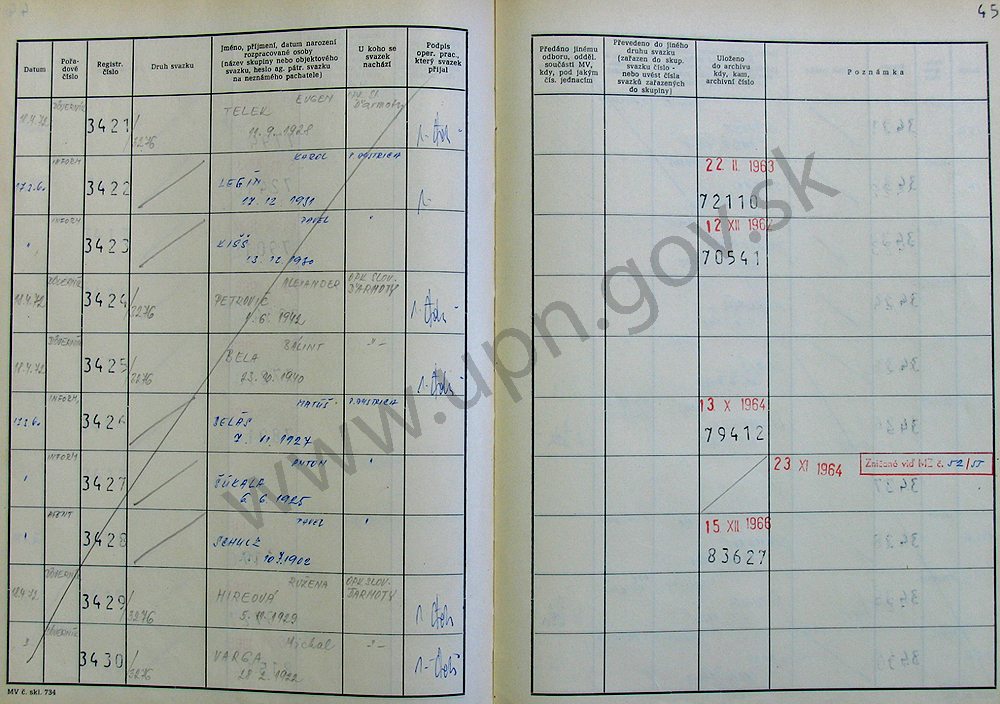 45
Datum
Pořa-
dové
číslo
Registr.
číslo
Druh svazku
Jméno, příjmení, datum narození
rozpracované osoby
(název skupiny nebo objektového
svazku, heslo ag. pátr. svazku
na neznámého pachatele)
U koho se
svazek
nachází
Podpis
oper. prac.,
který svazek
přijal
Předáno jinému
odboru, odděl.
součásti MV,
kdy, pod jakým
čís. jednacím
Převedeno do jiného
druhu svazku
(zařazen do skup.
svazku číslo -
nebo uvést čísla
svazků zařazených
do skupiny)
Uloženo
do archivu
kdy, kam,
archivní číslo
Poznámka
3421
3276
EUGEN
TELEK
11. 9. 1928
INFORM
17.3.60
3422
KAROL
LEGÍŇ
17. 12. 1931
P. BYSTRICA
22. II. 1963
72110
INFORM
"
3423
PAVEL
KIŠŠ
13. 12. 1930
"
12 XII 1962
70541
DÔVERNÍK
18.4.72
3424
3276
ALEXANDER
PETROVIČ
1. 6. 1942
OPK SLOV.
ĎARMOTY
DÔVERNÍK
18.4.72
3425
3276
BÁLINT
BELA
1940
INFORM.
17.3.60
3426
MATÚŠ
BELÁŠ
7. VI. 1927
P. BYSTRICA
13 X 1964
79412
INFORM
"
3427
ANTON
ČÚKALA
6. 6. 1925
"
23 XI 1964
Zničené viď MZ č. 52/55
AGENT
"
3428
PAVEL
SCHULZ
1902
"
15 XII 1966
83627
DÔVERNÍK
18.4.72
3429
3276
RUŽENA
HIREOVÁ
5. 11. 1929
OPK SLOV.
ĎARMOTY
DÔVERNÍK
3430
3276
Michal
VARGA
28. 2. 1922
MV č. skl. 734
www.upn.gov.sk